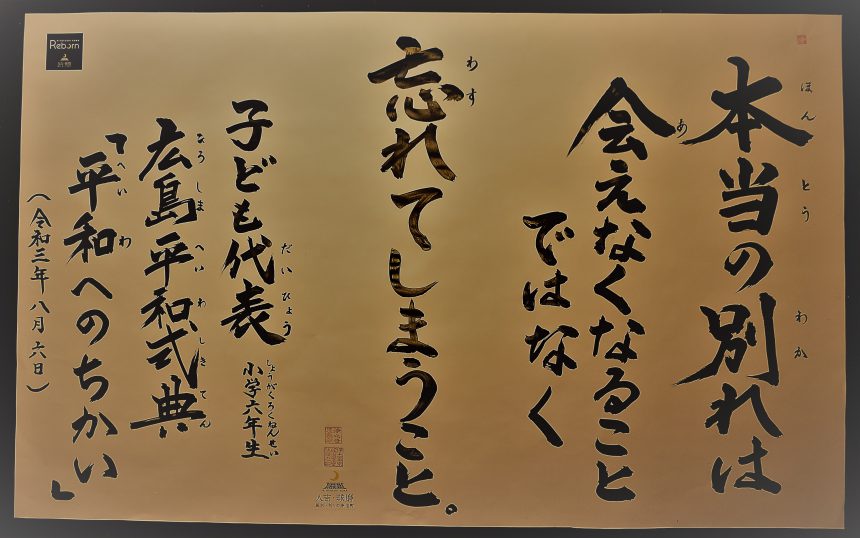 本当の別れは
会えなくなること
ではなく
忘れてしまうこと。
子ども代表 小学六年生
広島平和式典
「平和へのちかい」
(令和三年八月六日)
ほんとう わか
あ
わす
だいひょう しょうがくろくねんせい
ひろしまへいわしきてん
へいわ
Reborn